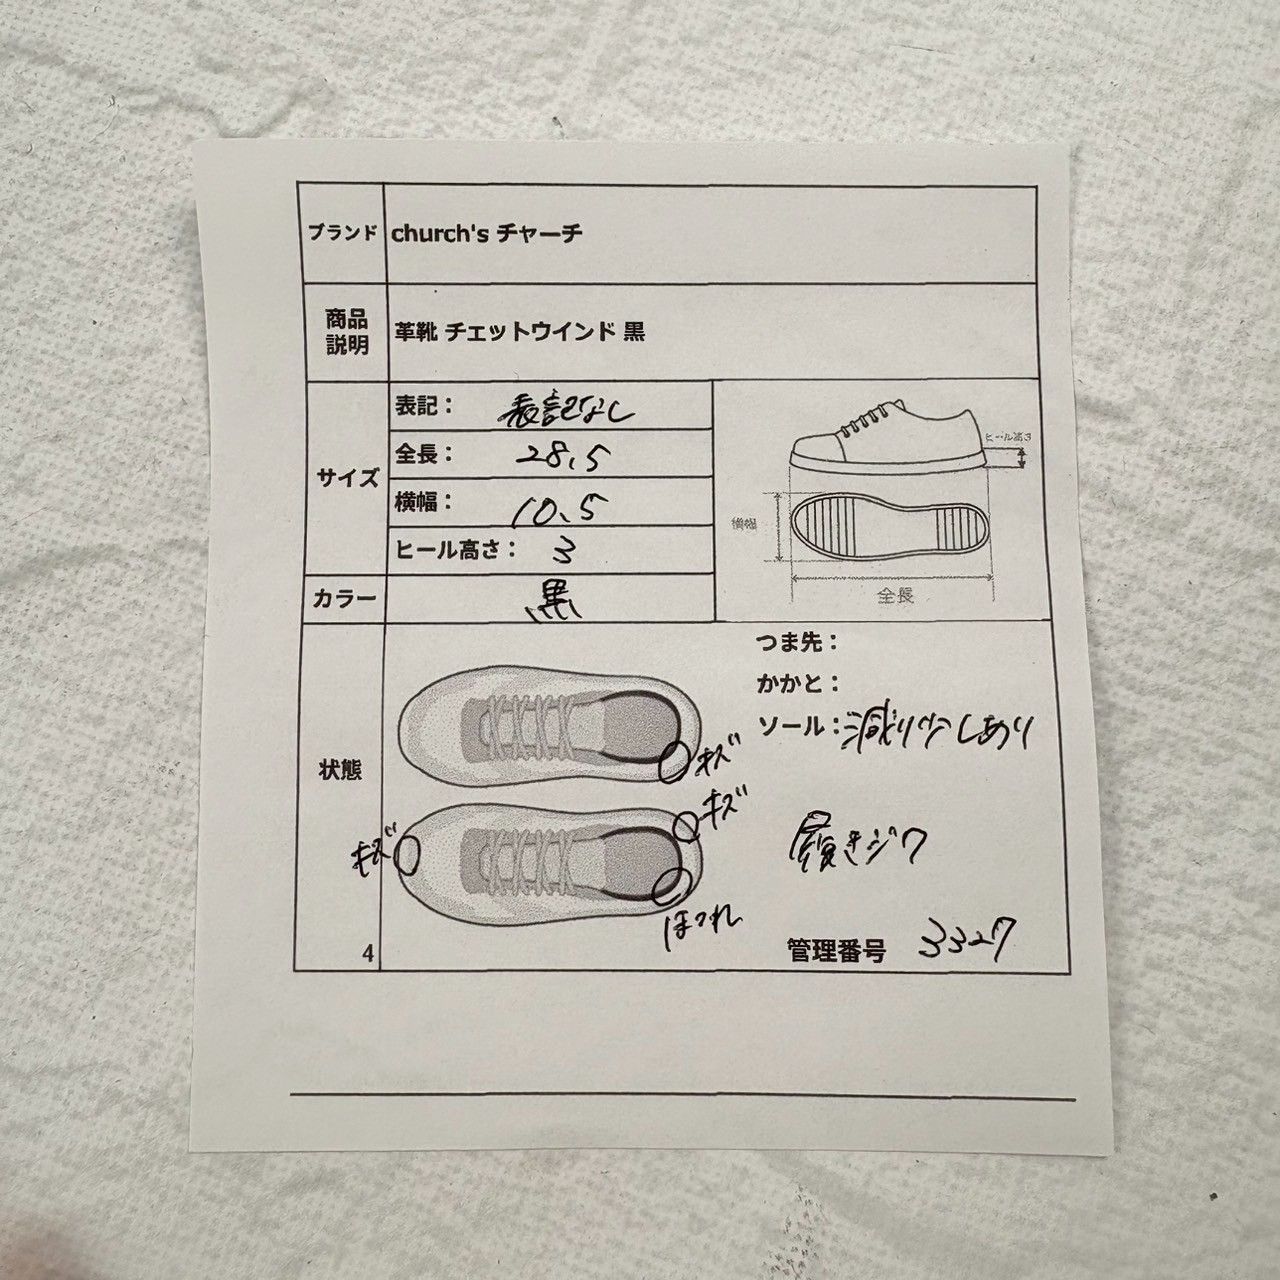 ブランド church's チャーチ
商品
説明
革靴 チェットウインド 黒
サイズ
表記： 表記なし
全長： 28.5
横幅： 10.5
ヒール高さ： 3
ヒール高さ
横幅
全長
カラー 黒
状態
つま先：
かかと：
ソール：減り少しあり
キズ
キズ
キズ
ほつれ
履きジワ
管理番号 3327
4